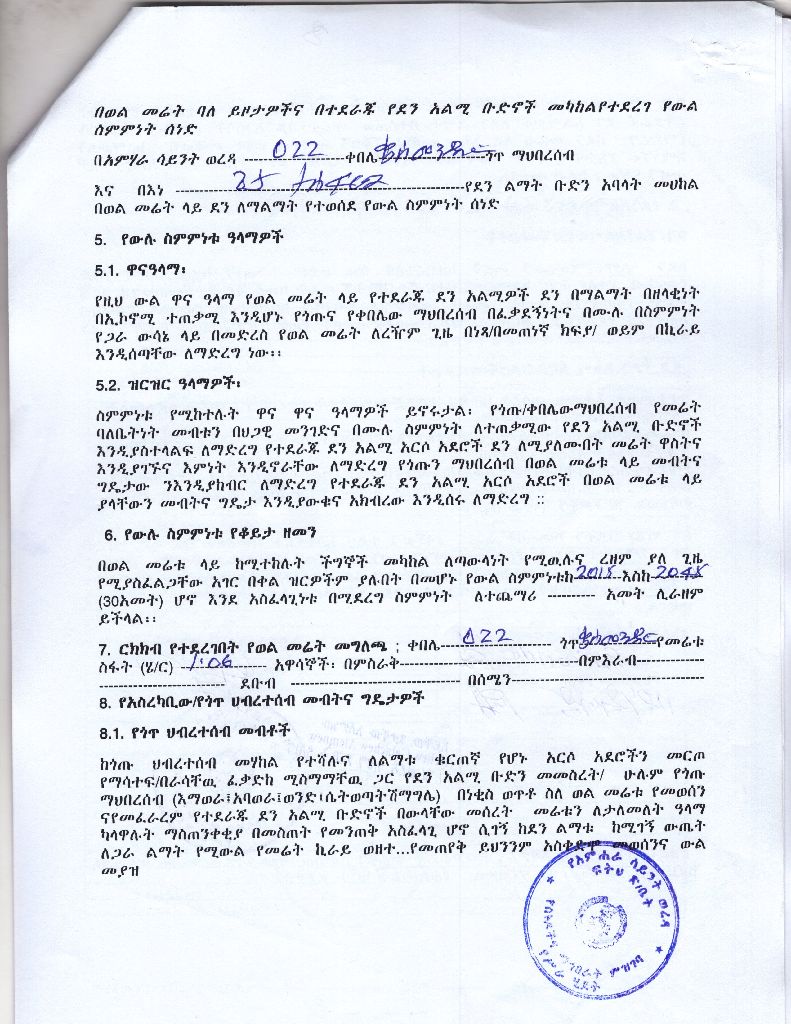 በወል መሬት ባለ ይዞታዎችና በተደራጁ የደን አልሚ ቡድኖች መካከልየተደረገ የውል
ስምምነት ሰነድ
በአምሃራ ሳይንት ወረዳ ---------------- 022 ---------ቀበሌ --------------- ጎጥ ማህበረሰብ
እና በእነ ------------------------------------------------የደን ልማት ቡድን አባላት መሀከል
በወል መሬት ላይ ደን ለማልማት የተወሰደ የውል ስምምነት ሰነድ
5. የውሉ ስምምነቱ ዓላማዎች
5.1. ዋናዓላማ፡
የዚህ ውል ዋና ዓላማ የወል መሬት ላይ የተደራጁ ደን አልሚዎች ደን በማልማት በዘላቂነት
በኢኮኖሚ ተጠቃሚ እንዲሆኑ የጎጡና የቀበሌው ማህበረሰብ በፈቃደኝነትና በሙሉ በስምምነት
የጋራ ውሳኔ ላይ በመድረስ የወል መሬት ለረዥም ጊዜ በነጻ/በመጠነኛ ክፍያ/ ወይም በኪራይ
እንዲሰጣቸው ለማድረግ ነው፡፡
5.2. ዝርዝር ዓላማዎች፡
ስምምነቱ የሚከተሉት ዋና ዋና ዓላማዎች ይኖሩታል፡ የጎጡ/ቀበሌውማህበረሰብ የመሬት
ባለቤትነት መብቱን በህጋዊ መንገድና በሙሉ ስምምነት ለተጠቃሚው የደን አልሚ ቡድኖች
እንዲያስተላልፍ ለማድረግ የተደራጁ ደን አልሚ አርሶ አደሮች ደን ለሚያለሙበት መሬት ዋስትና
እንዲያገኙና እምነት እንዲኖራቸው ለማድረግ የጎጡን ማህበረሰብ በወል መሬቱ ላይ መብትና
ግዴታው ንእንዲያከብር ለማድረግ የተደራጁ ደን አልሚ አርሶ አደሮች በወል መሬቱ ላይ
ያላቸውን መብትና ግዴታ እንዲያውቁና አክብረው እንዲሰሩ ለማድረግ ::
6. የውሉ ስምምነቱ የቆይታ ዘመን
በወል መሬቱ ላይ ከሚተከሉት ችግኞች መካከል ለጣውላነት የሚዉሉና ረዘም ያለ ጊዜ
የሚያስፈልጋቸው አገር በቀል ዝርዎችም ያሉበት በመሆኑ የውል ስምምነቱከ 2015 --እስከ 2045
(30አመት) ሆኖ እንደ አስፈላጊነቱ በሚደረግ ስምምነት ለተጨማሪ ---------- አመት ሊራዘም
ይችላል፡፡
7. ርክክብ የተደረገበት የወል መሬት መግለጫ ; ቀበሌ---- 022 ---------- ጎጥ የመሬቱ
ስፋት (ሄ/ር) -- 1.06 --------- አዋሳኞች፡ በምስራቅ------------------------------------በምእራብ-------------
------------------------- ደቡብ ---------------------------------- በሰሜን------------------------------------
8. የአስረካቢው/የጎጥ ህብረተሰብ መብትና ግዴታዎች
8.1. የጎጥ ህብረተሰብ መብቶች
ከጎጡ ህብረተሰብ መሃከል የተሻሉና ለልማቱ ቁርጠኛ የሆኑ አርሶ አደሮችን መርጦ
የማሳተፍ/በራሳቸዉ ፈቃድከ ሚስማማቸዉ ጋር የደን አልሚ ቡድን መመስረት/ ሁሉም የጎጡ
ማህበረሰብ (እማወራ፤አባወራ፤ወንድ፣ሴትወጣትሽማግሌ) በነቂስ ወጥቶ ስለ ወል መሬቱ የመወሰን
ናየመፈራረም የተደራጁ ደን አልሚ ቡድኖች በውላቸው መሰረት መሬቱን ለታለመለት ዓላማ
ካላዋሉት ማስጠንቀቂያ በመስጠት የመንጠቅ አስፈላጊ ሆኖ ሲገኝ ከደን ልማቱ ከሚገኝ ውጤት
ለጋራ ልማት የሚውል የመሬት ኪራይ ወዘተ...የመጠየቅ ይህንንም አስቀድሞ መወሰንና ውል
መያዝ
የአምሐራ ሳይንት ወረዳ
ፍትህ ጽ/ቤት